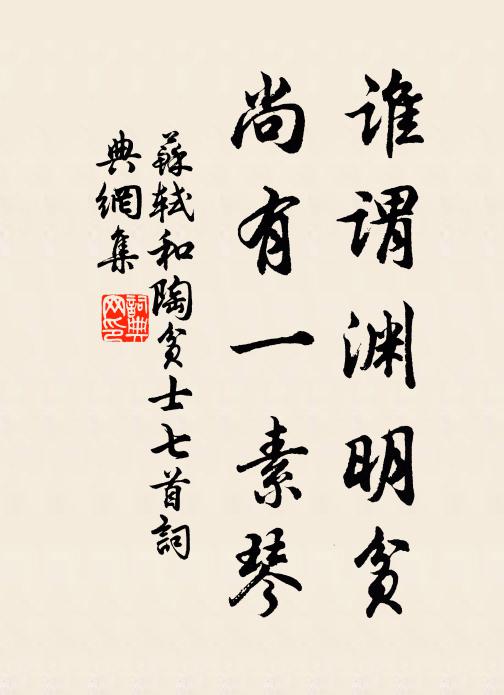 谁谓渊明贫
尚有一素琴
蘇軾和陶贫士七首詞
典網集
詞典网印